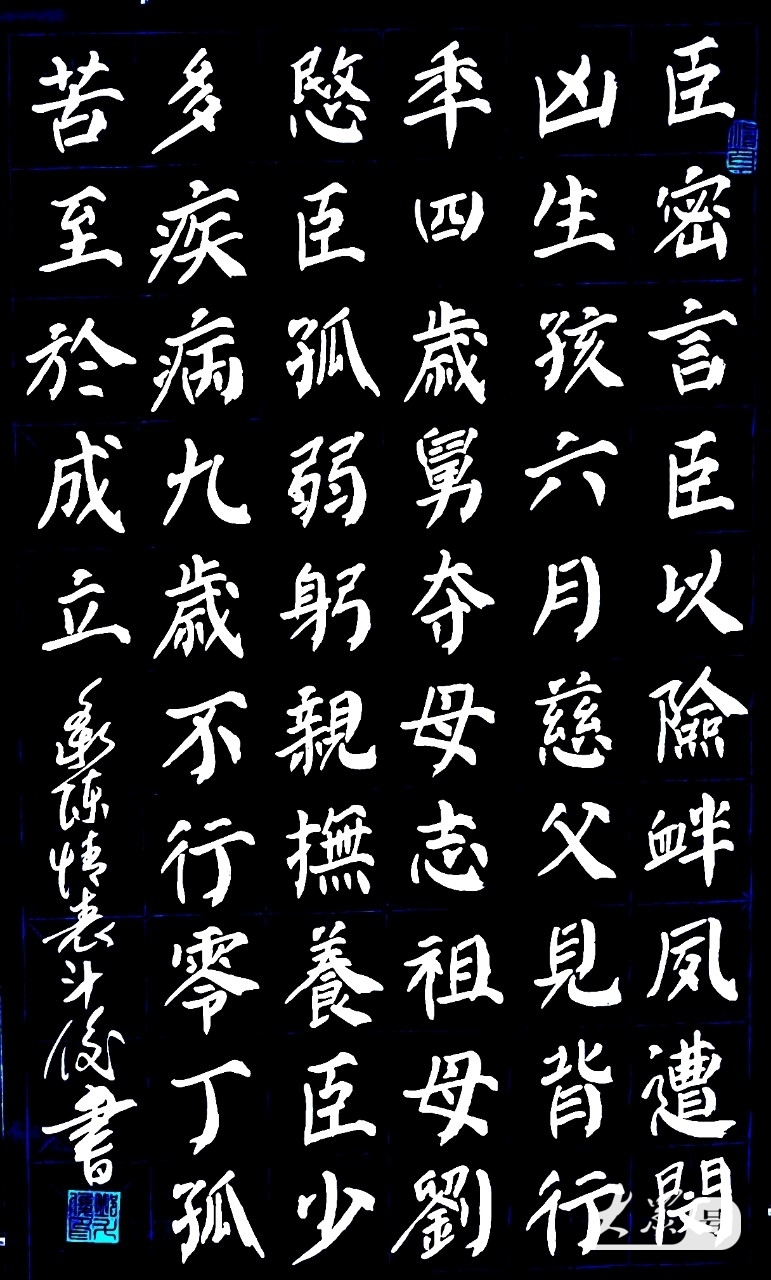 臣密言臣以險衅夙遭閔
凶生孩六月慈父見背行
年四歲舅夺母志祖母劉
愍臣孤弱躬親撫養臣少
多疾病九歲不行零丁孤
苦至於成立
陳情表斗俊書